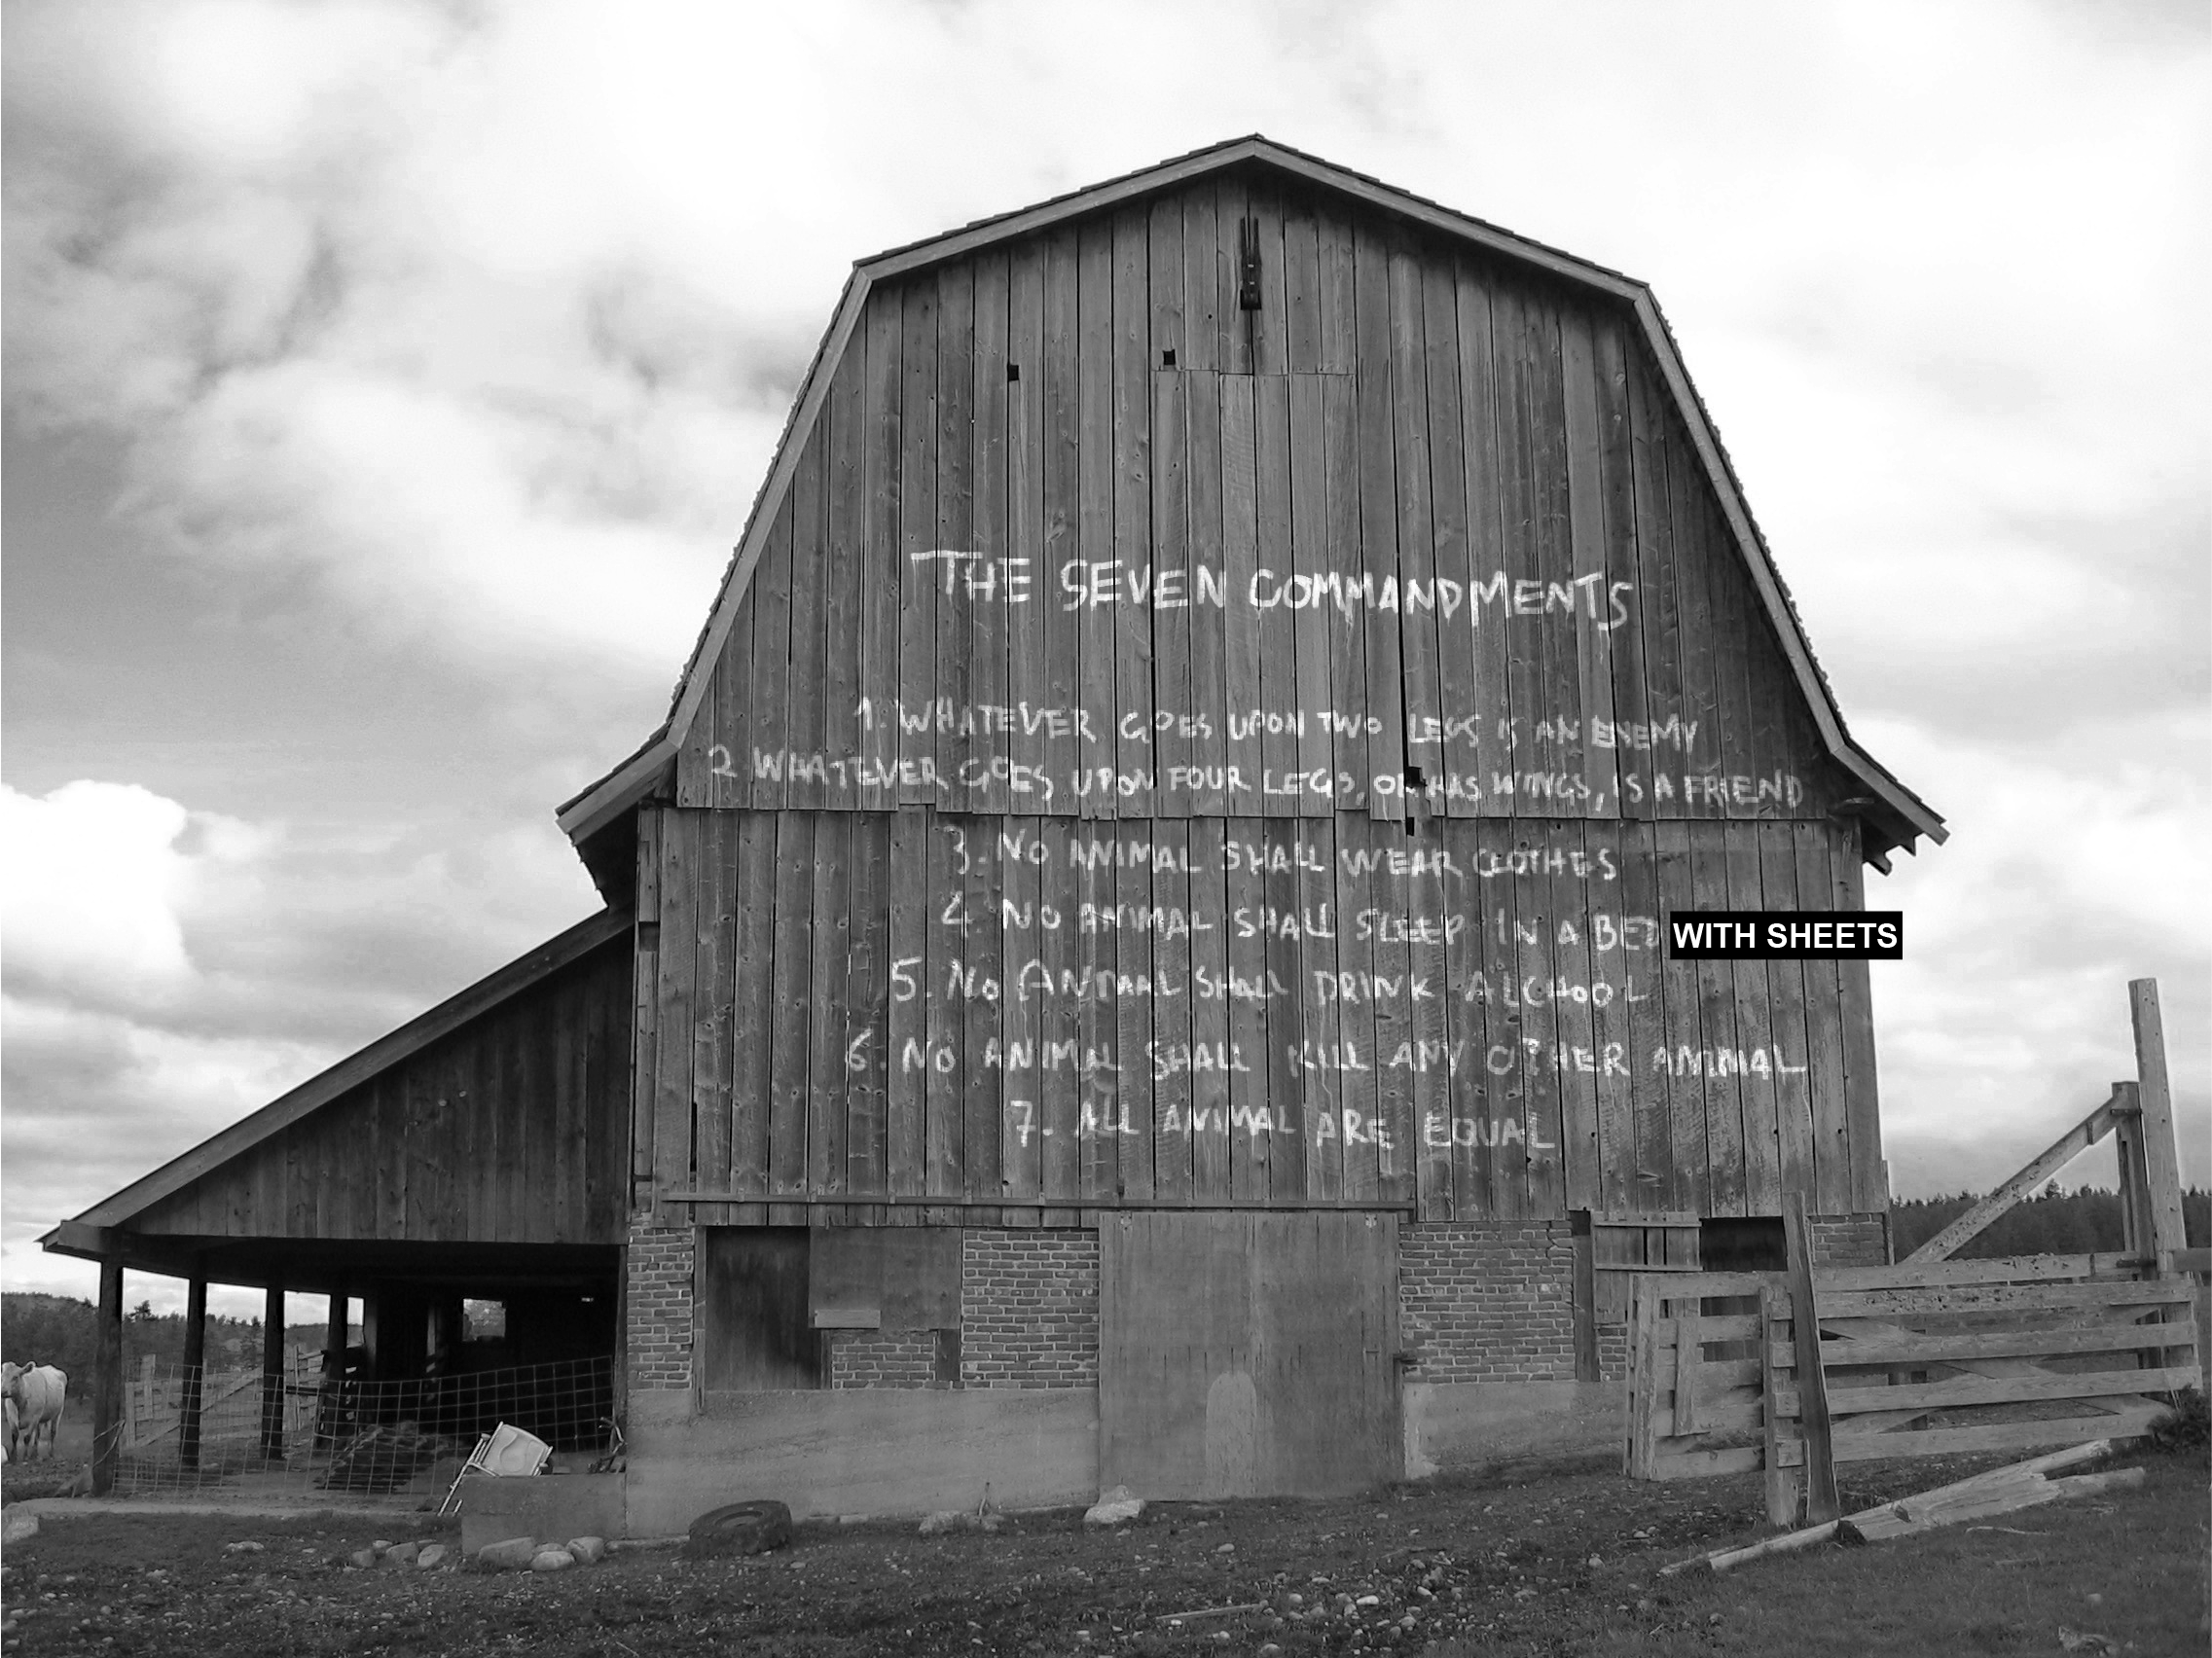 THE SEVEN COMMANDMENTS
1. WHATEVER GOES UPON TWO LEGS IS AN ENEMY
2 WHATEVER GOES UPON FOUR LEGS, OR HAS WINGS, IS A FRIEND
3. NO ANIMAL SHALL WEAR CLOTHES
4. NO ANIMAL SHALL SLEEP IN A BED WITH SHEETS
5. NO ANIMAL SHALL DRINK ALCHOOL
6. NO ANIMAL SHALL KILL ANY OTHER ANIMAL
7. ALL ANIMAL ARE EQUAL